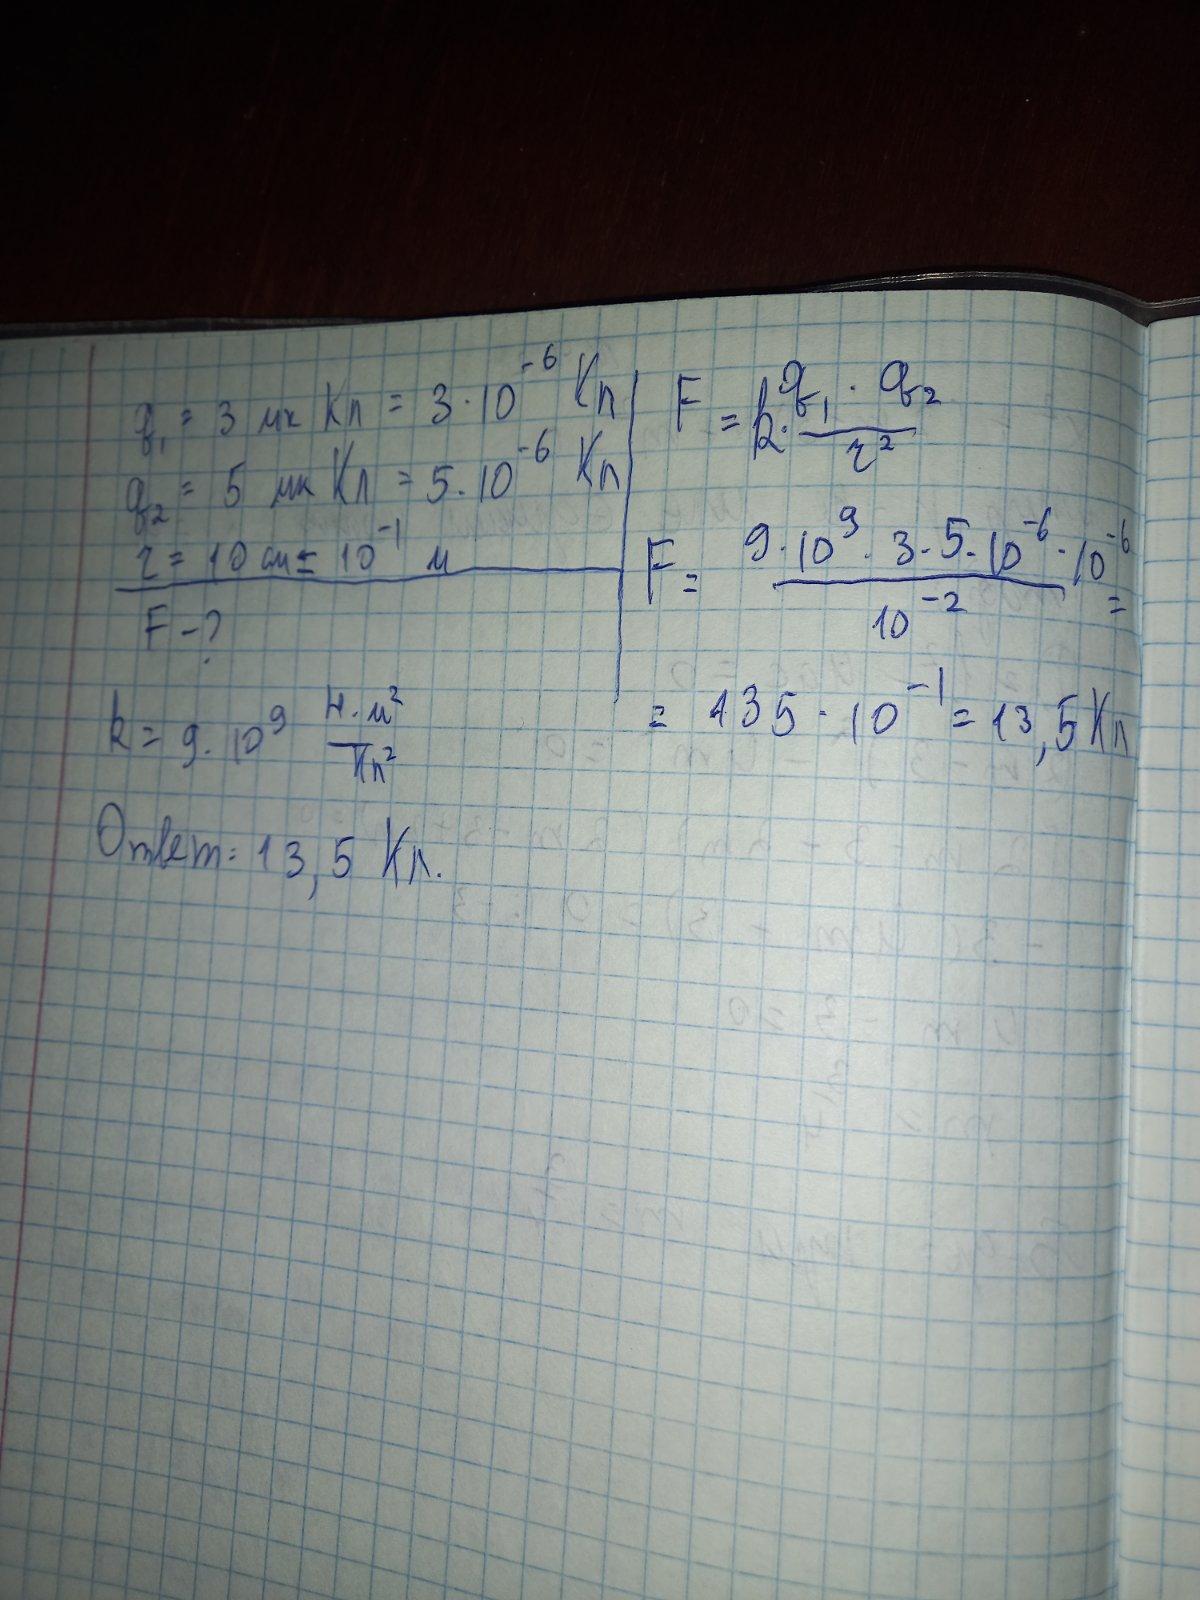 q₁ = 3 мк Кл = 3·10⁻⁶ Кл
q₂ = 5 мк Кл = 5·10⁻⁶ Кл
r = 10 см = 10⁻¹ м
F - ?
k = 9·10⁹ Н·м²/Кл²
F = k·q₁·q₂/r²
F = 9·10⁹·3·5·10⁻⁶·10⁻⁶/10⁻² =
= 135·10⁻¹ = 13,5 Кл
Ответ: 13,5 Кл.